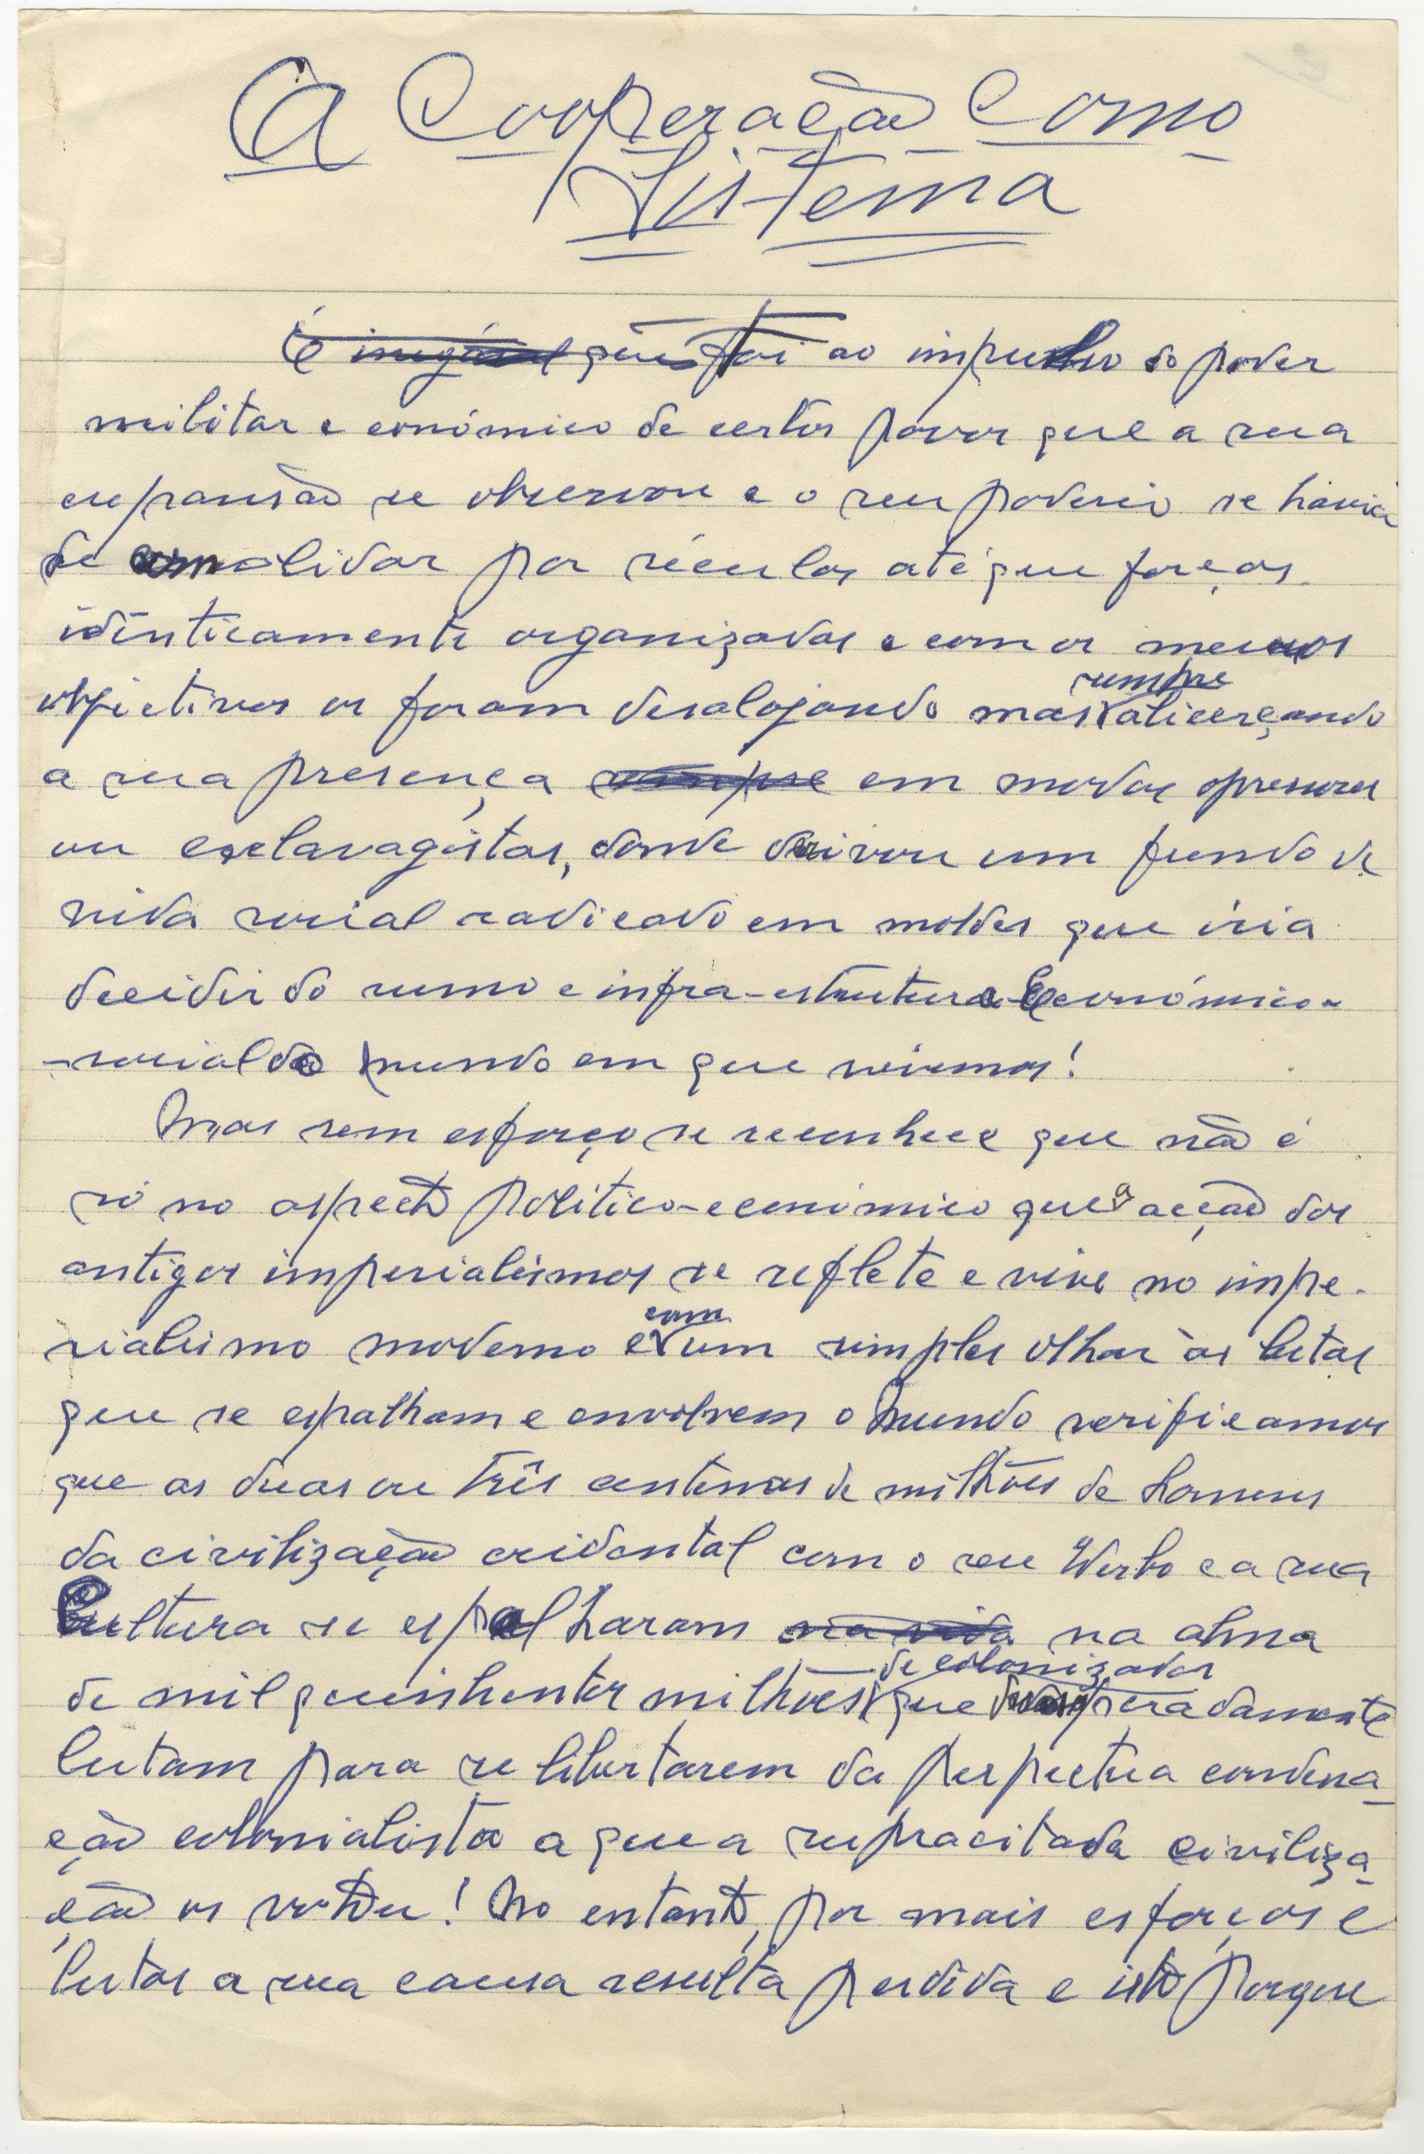 A Cooperação como
Sistema
É inegável que foi ao impulso do poder
militar e económico de certos povos que a sua
expansão se observou e o seu poderio se havia
de consolidar por séculos até que forças
idênticamente organizadas e com os mesmos
objectivos os foram desalojando mas sempre alicerçando
a sua presença sempre em modos opressores
ou esclavagistas, donde derivou um fundo de
vida social radicado em moldes que iria
decidir do rumo e infra-estrutura económico-
-social do mundo em que vivemos!
Mas sem esforço se reconhece que não é
só no aspecto político-económico que a acção dos
antigos imperialismos se reflete e vive no impe-
rialismo moderno e com um simples olhar às lutas
que se espalham e envolvem o mundo verificamos
que as duas ou três centenas de milhões de homens
da civilização ocidental com o seu Verbo e a sua
Cultura se espalharam na vida na alma
de mil quinhentos milhões de colonizados que desesperadamente
lutam para se libertarem da perpectua condena-
ção colonialista a que a supracitada civiliza-
ção os votou! No entanto, por mais esforços e
lutas a sua causa resulta perdida e isto porque